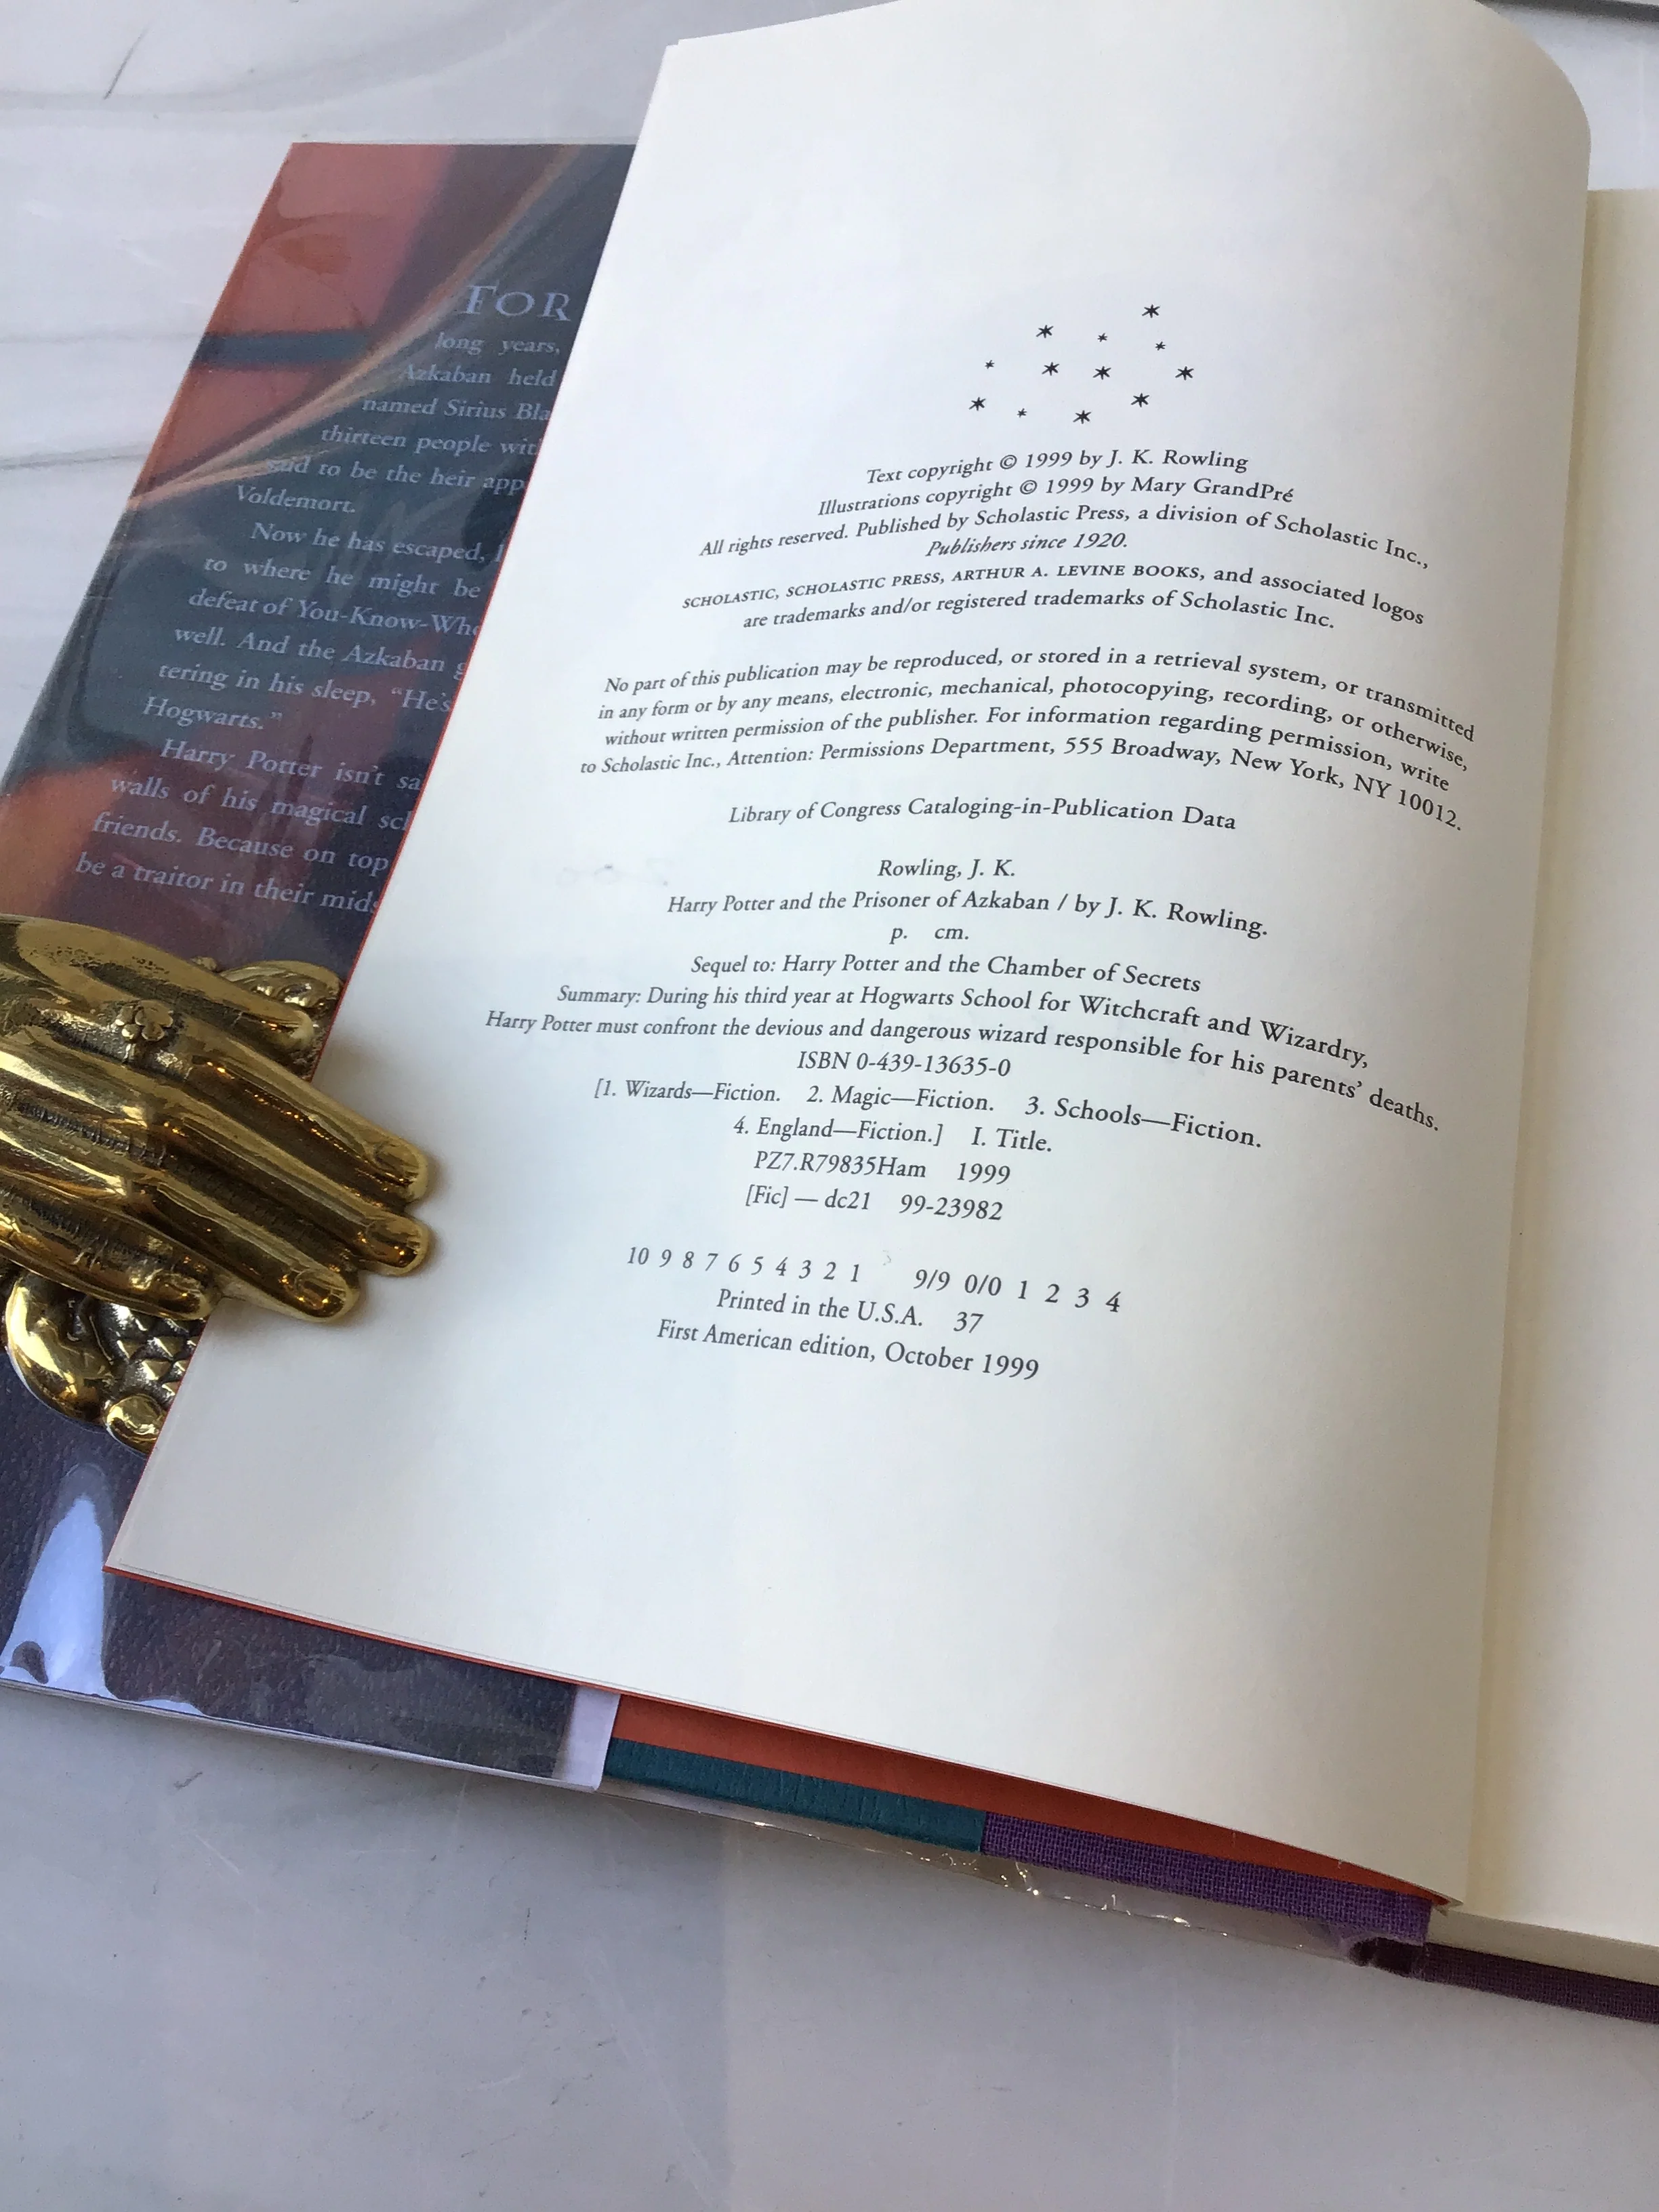 FOR
long years,
Azkaban held
named Sirius Bla
thirteen people wit
said to be the heir app
Voldemort.
Now he has escaped, l
to where he might be
defeat of You-Know-Who
well. And the Azkaban g
tering in his sleep, “He's
Hogwarts.”
Harry Potter isn't sa
walls of his magical sch
friends. Because on top
be a traitor in their mids
Text copyright © 1999 by J. K. Rowling
Illustrations copyright © 1999 by Mary GrandPré
All rights reserved. Published by Scholastic Press, a division of Scholastic Inc.,
Publishers since 1920.
SCHOLASTIC, SCHOLASTIC PRESS, ARTHUR A. LEVINE BOOKS, and associated logos
are trademarks and/or registered trademarks of Scholastic Inc.
No part of this publication may be reproduced, or stored in a retrieval system, or transmitted
in any form or by any means, electronic, mechanical, photocopying, recording, or otherwise,
without written permission of the publisher. For information regarding permission, write
to Scholastic Inc., Attention: Permissions Department, 555 Broadway, New York, NY 10012.
Library of Congress Cataloging-in-Publication Data
Rowling, J. K.
Harry Potter and the Prisoner of Azkaban / by J. K. Rowling.
p. cm.
Sequel to: Harry Potter and the Chamber of Secrets
Summary: During his third year at Hogwarts School for Witchcraft and Wizardry,
Harry Potter must confront the devious and dangerous wizard responsible for his parents' deaths.
ISBN 0-439-13635-0
[1. Wizards—Fiction. 2. Magic—Fiction. 3. Schools—Fiction.
4. England—Fiction.] I. Title.
PZ7.R79835Ham 1999
[Fic] — dc21 99-23982
10 9 8 7 6 5 4 3 2 1 9/9 0/0 1 2 3 4
Printed in the U.S.A. 37
First American edition, October 1999